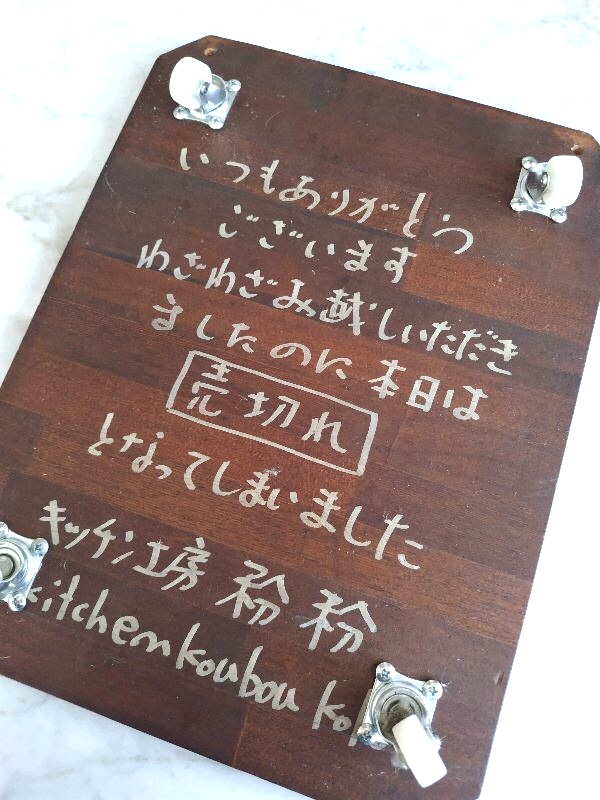 いつもありがとう
ございます
わざわざお越しいただき
ましたのに本日は
売切れ
となってしまいました
キッチン工房 粉粉
kitchenkoubou ko